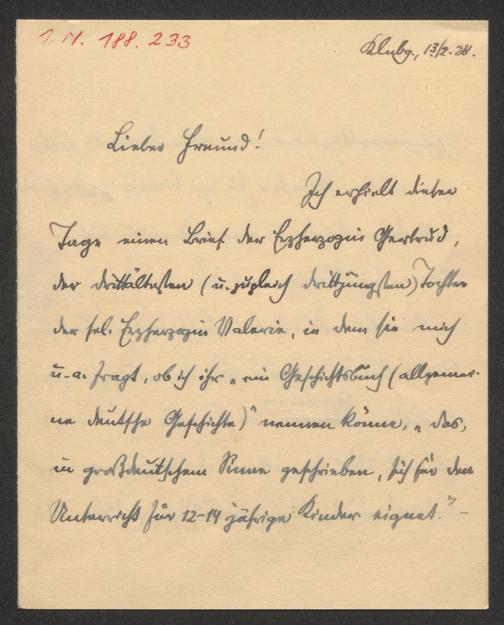 I.N. 188.233
Klnbg., 13/2. 28.
Lieber Freund!
Ich erhielt dieser
Tage einen Brief der Erzherzogin Gertrud,
der drittältesten (u. zugleich drittjüngsten) Tochter
der sel. Erzherzogin Valerie, in dem sie mich
u. a. fragt, ob ich ihr „ein Geschichtsbuch (allgemei-
ne deutsche Geschichte)" nennen könne, „das,
in großdeutschem Sinne geschrieben, sich für den
Unterricht für 12-14 jährige Kinder eignet." –